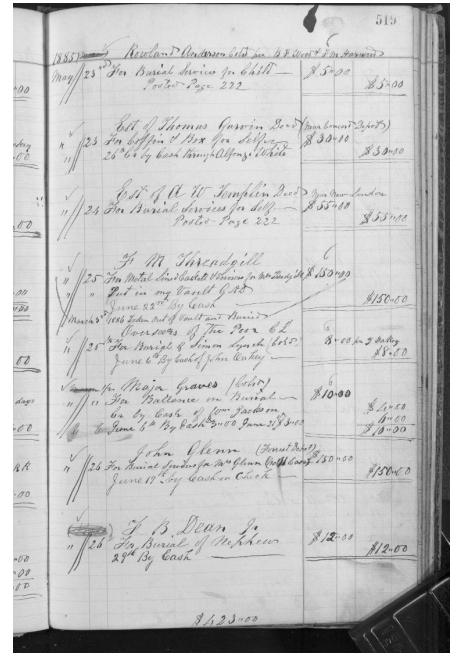 519
1885 Rowland Anderson Cold per B F West & F M Harwood
May 23rd For Burial Services for Child $5-00
Posted Page 222 $5-00
Est of Thomas Garvin Decd (near Concord Depot)
" 23 For Coffin & Box for Self $30-00
" 26th Cr by Cash through Alfonzo White $30-00
Est of A W Templin Decd Nr New London
" 24 For Burial Services for Self $55-00
Posted Page 222 $55-00
F M Threadgill
" 25 For Metal Lined Casket & Services for Mrs Threadgill $150-00
" Put in my Vault G A D
June 22nd By Cash $150-00
March 3rd 1886 Taken Out of Vault and Buried
Overseers of The Poor C L
" 25th For Burial of Simon Lynch (Cold) 8-00 pr J Oakey
June 6th By Cash of John Oakey $8-00
for Major Graves (Cold)
" " For Ballance on Burial $10-00
Cr by Cash of Wm Jackson
June 6th By Cash $3-00 June 21 $3-00
$10-00
John Glenn (Forrest Depot)
" 26 For Burial Services for Mrs Glenn $150-00
June 19th by Cash in Check $150-00
F B Dean Jr
" 26 For Burial of Nephew $12-00
29th By Cash $12-00
$423-00